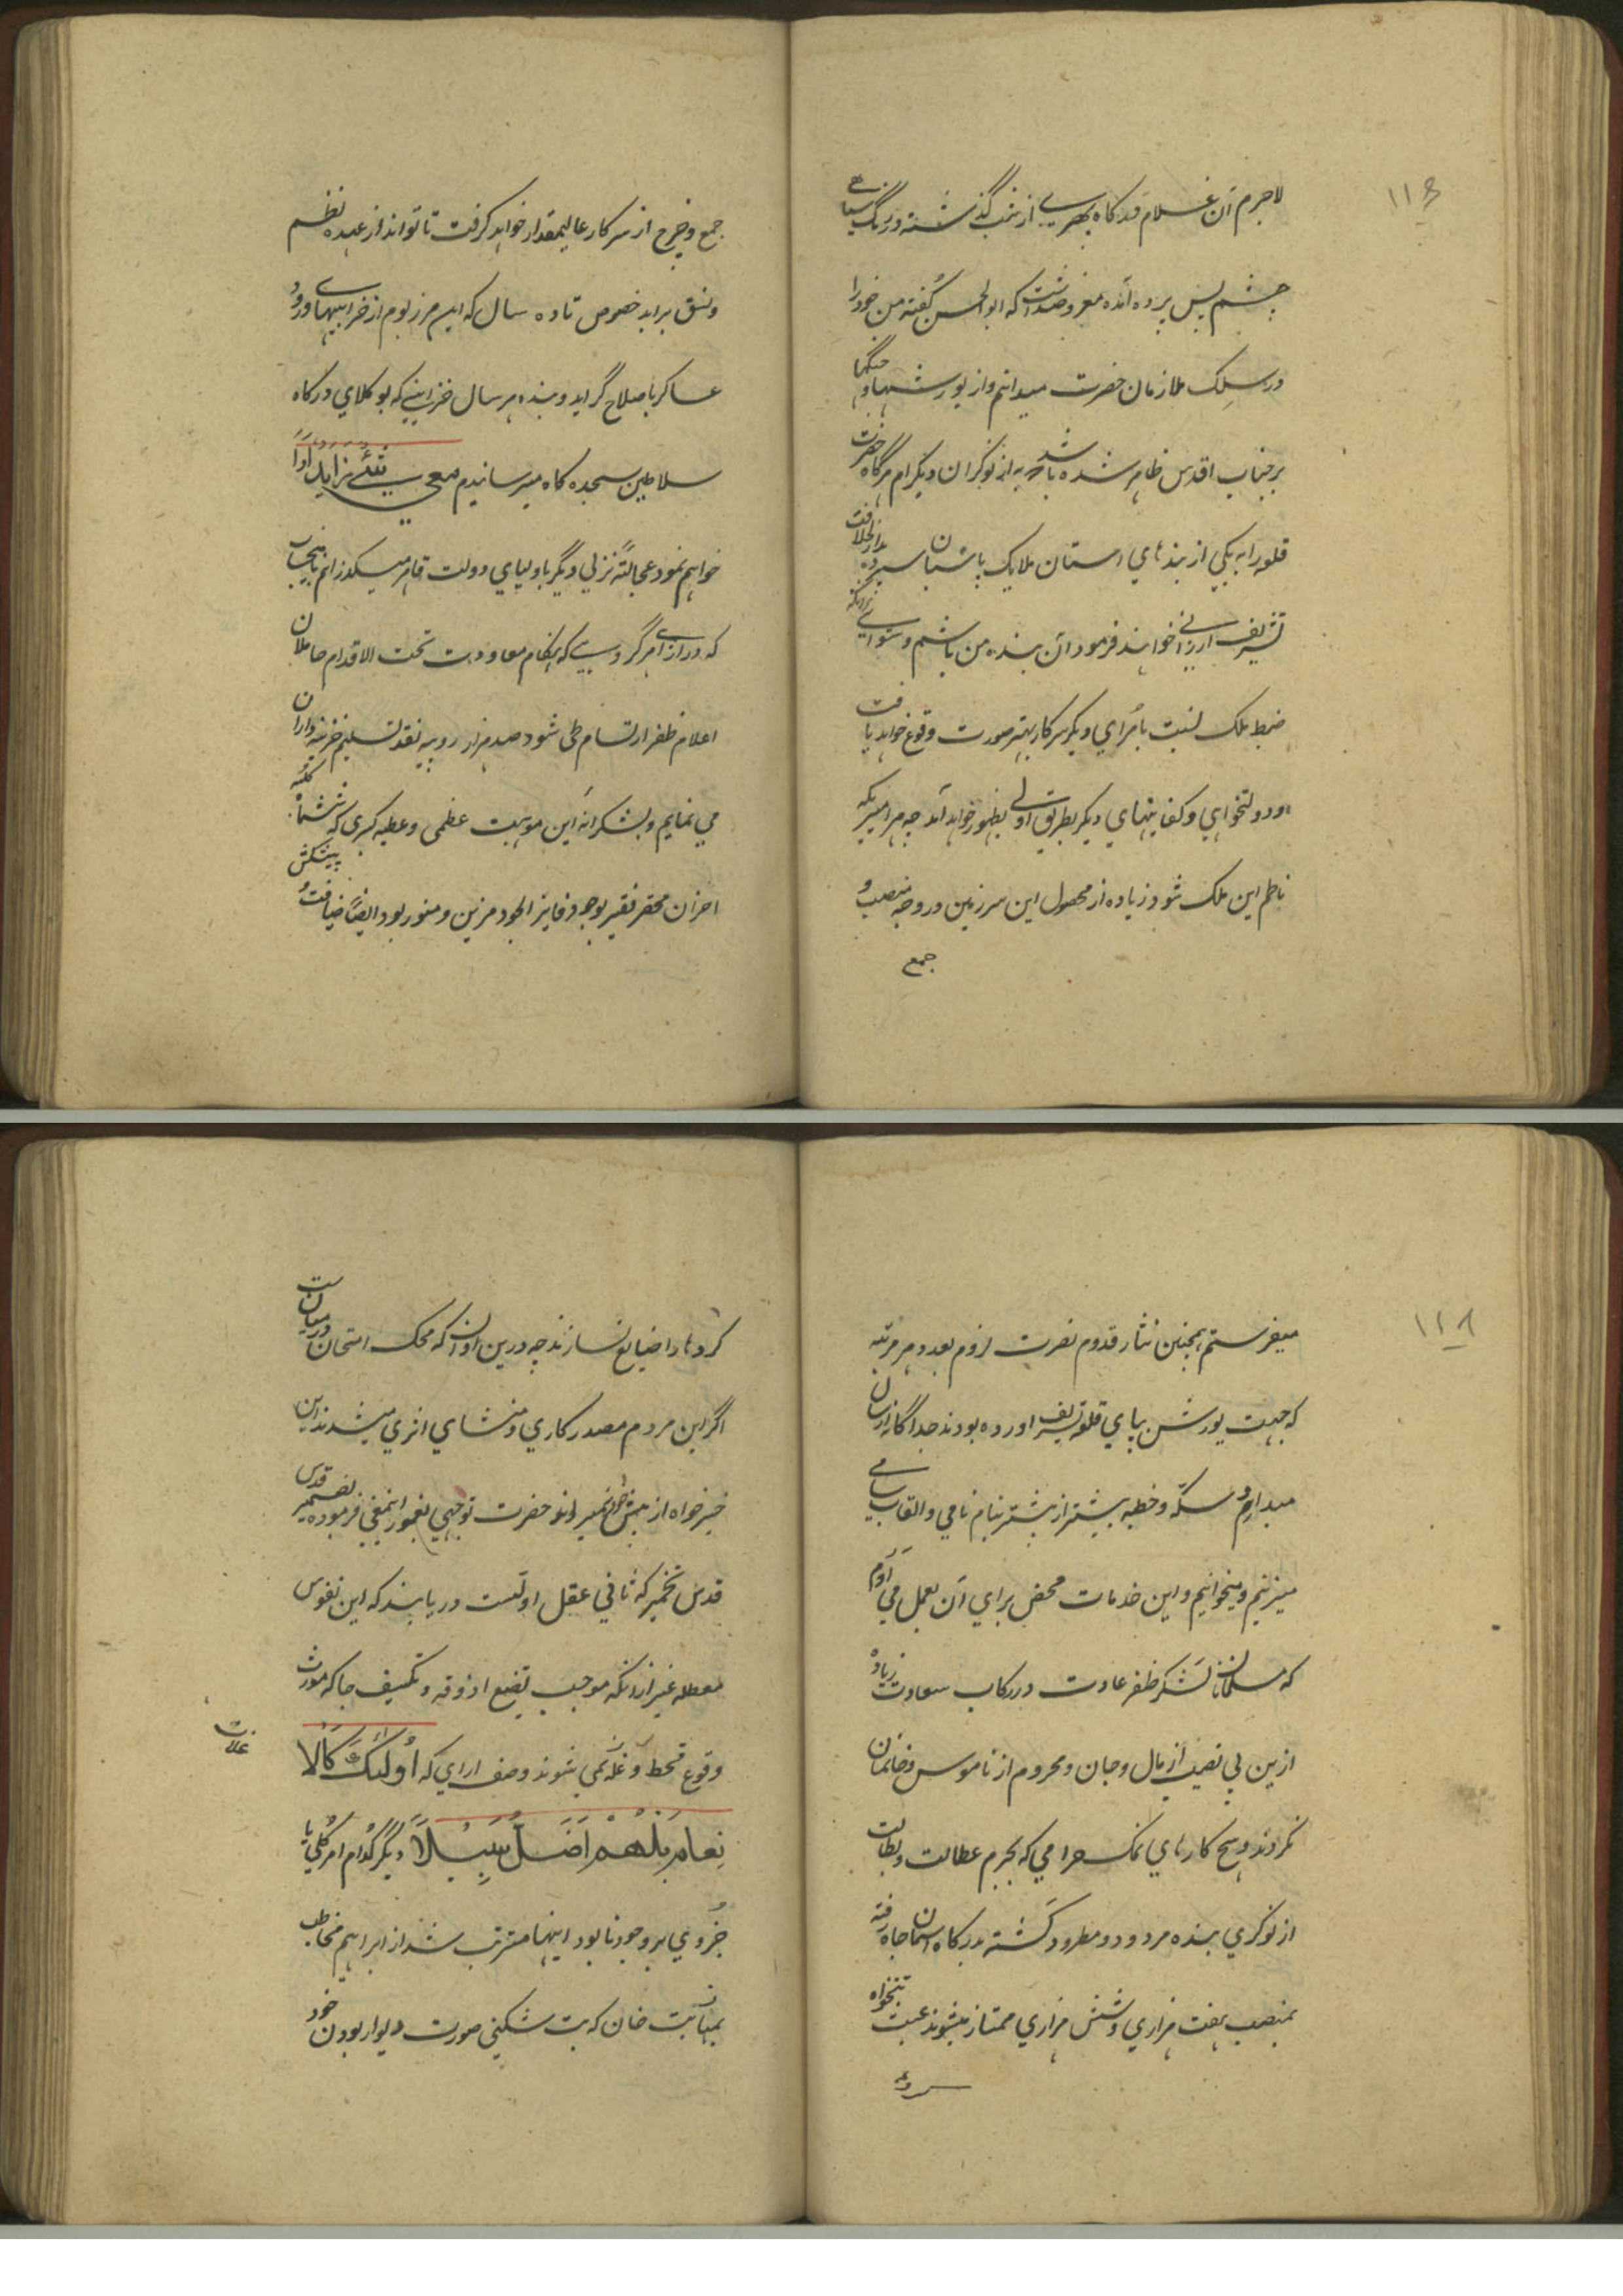 ۱۱۶
لاجرم آن غلام قدرگاه بهری از شب گذشته در رنگ سیاهی
چشم پس پرده آمده معروضداشت که ابوالحسن گفته من خود را
در سلک ملازمان حضرت میدانم و از یورشها و جنگها
بر جناب اقدس ظاهر شده باشد که به از نوکران دیگرام هرگاه حضرت
قلعه را به یکی از بندهای آستان ملایک پاسبان سپرده بدارالخلافت
تشریف ارزانی خواهند فرمود آن بنده من باشم و سوای آنکه
ضبط ملک نسبت بامرای دیگر سرکار بهتر صورت وقوع خواهد یافت
و دولتخواهی و کفایتهای دیگر بطریق اولی بظهور خواهد آمد چه هر امیریکه
ناظم این ملک شود زیاده از محصول این سرزمین در وجه منصب و
جمع
جمع و خرج از سرکار عالیمقدار خواهد گرفت تا تواند از عهده نظم
و نسق براید خصوص تا ده سال که این مرز بوم از خرابیهای ورود
عساکر باصلاح گراید و بنده هر سال خزاینی که بوکلای درگاه
سلاطین سجده گاه میرسانیدم مع شیئی زاید ادا
خواهم نمود عجالتة نزلی دیگر باولیای دولت قاهره میگذرانم باینجساب
که در ازای هر گروهی که هنگام معاودت تحت الاقدام حاملان
اعلام ظفر ارتسام طی شود صد هزار روپیه نقد تسلیم خزینه داران
می نمایم و بشکرانه این موهبت عظمی و عطیه کبری که ششماه کلبه
احزان محقر فقیر بوجود فایز الجود مزین و منور بود ایضًا ضیافت و پیشکش
۱۱۸
میفرستم همچنین نثار قدوم نصرت لزوم بعدد هر مرتبه
که جهت یورش بپای قلعه تشریف آورده بودند جداگانه ارسان
میدارم و سکه و خطبه بیشتر از پیشتر بنام نامی و القاب سامی
میزنیم و میخوانیم و این خدمات محض برای آن بعمل می آورم
که مسلمانان لشکر ظفر عادت در رکاب سعادت زیاده
ازین بی نصیب از مال و جان و محروم از ناموس و خانمان
نگردند و هیچ کارهای نمک حرامی که بجرم عطالت و بطالت
از نوکری بنده مردود و مطرود گشته بدرگاه آسمان جاه رفته
بمنصب هفت هزاری و شش هزاری ممتاز میشوند عبث تنخواه
کردها را ضایع نسازند چه درین اوان که محک امتحان در میانست
اگر این مردم مصدر کاری و منشای اثری میشدند این
خیرخواه از پیش خود نمیراند حضرت توجهی بغور اینمعنی فرموده بضمیر قدس
قدس تخمیر که ثانی عقل اولست دریابند که این نفوس
معطله غیر ازانکه موجب تضیع اذوقه و تکثیف جا که مورث
وقوع قحط و غلا نمی شوند وصف ارای که اُولئِکَ کَالا
نعام بل هم اَضَلُّ سَبیلاً دیگر کدام امر کلی یا
جزوی بر وجود نابود اینها مترتب شد از ابراهیم مخاطب
بمهابت خان که بت شکنی صورت دیوار بودن خود